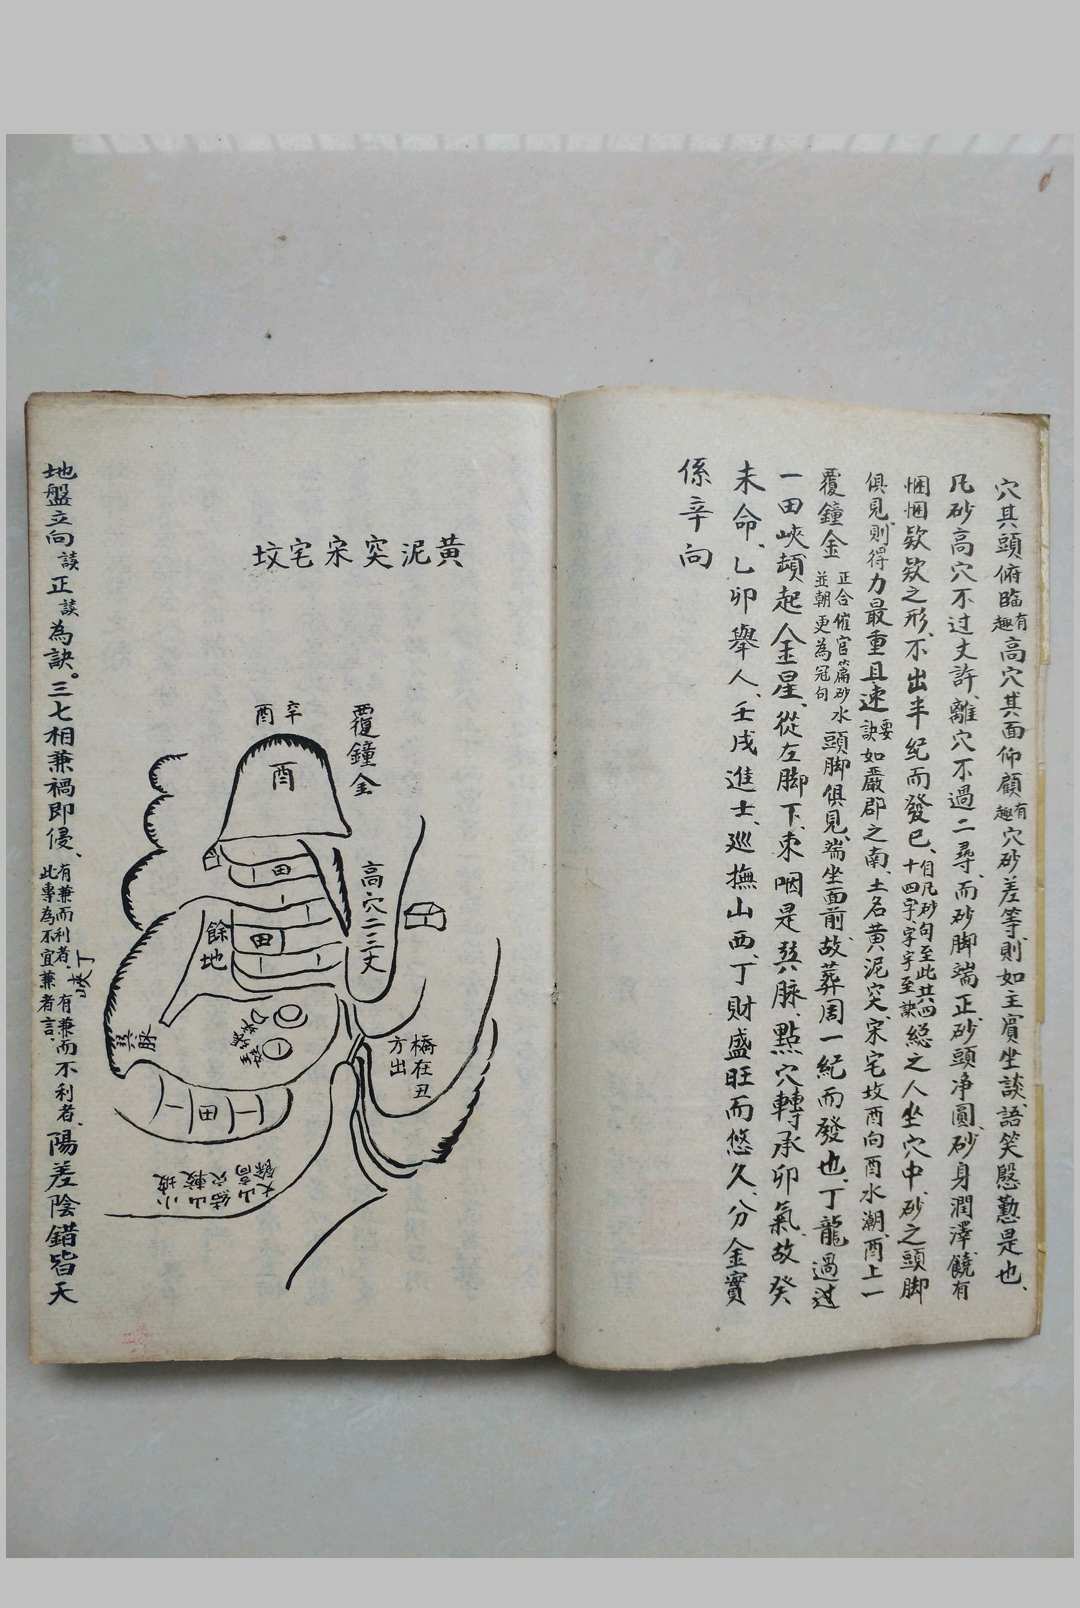 穴其頭俯臨有趣高穴其面仰顧有趣穴砂差等則如主賓坐談語笑慇懃是也、
凡砂高穴不过丈許、離穴不過二尋、而砂脚端正、砂頭净圓、砂身潤澤、饒有
悃悃欵欵之形、不出半紀而發已、自凡砂句至此共四十四字、字字至訣總之人坐穴中、砂之頭脚
俱見、則得力最重且速要訣如嚴郡之南、土名黄泥突、宋宅坟酉向酉水潮、酉上一
覆鐘金正合催官篇砂水並朝更為冠句頭脚俱見端坐面前、故葬周一紀而發也、丁龍過过
一田峽、頓起金星、從左脚下、束咽是巽脉、點穴轉承卯氣、故癸
未命、乙卯舉人、壬戌進士、巡撫山西、丁財盛旺而悠久、分金實
係辛向
黄泥突宋宅坟
覆鐘金
辛
酉
酉
田
高穴二三丈
餘地
田
橋在丑
方出
巽脉
田
小坡
丁峡
地盤立向談正談為訣。三七相兼禍即侵、有兼而利者、有兼而不利者、此專為不宜兼者言、陽差陰錯皆天